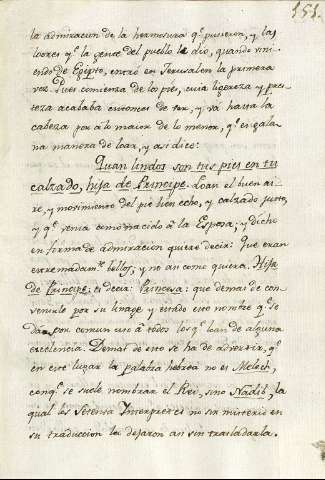 151.
la admiracion de la hermosura q.e pusieron, y las
loores q.e la gente del pueblo le dio, quando vini-
endo de Egipto, entró en Jerusalen la primera
vez. Pues comienza de los pies, cuia ligereza y pres-
teza acababa entonces de ver, y vá hasta la
cabeza por alo maior de lo menor, q.e es gala-
na manera de loar, y asi dice:
Quan lindos son tus pies en tu
calzado, hija de Principe. Loan el buen ai-
re, y movimiento del pie bien echo, y calzado justo,
y q.e venia como nacido á la Esposa; y dicho
en forma de admiracion quiere decir: que eran
extremadam.te bellos, y no asi como quiera. Hija
de Principe: es decir: Princesa: que demas de con-
venirle por su linage y estado este nombre q.e se
da por comun uso á todos los q.e loan de alguna
excelencia. Demas de esto se ha de advertir, q.e
en este lugar la palabra hebrea no es Melech,
conq.e se suele nombrar el Rei, sino Nadib, la
qual los Setenta Interpretes no sin misterio en
su traduccion la dejaron asi sin trasladarla.